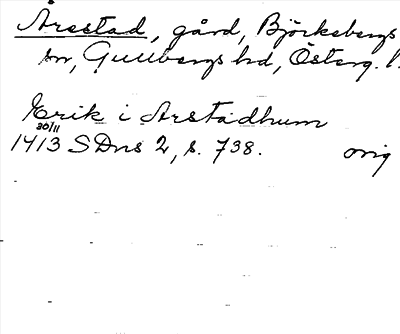 Årestad, gård, Björkebergs
sn, Gullbergs hd, Österg. l.
Erik i Arstadhum
30/11
1413 SDns 2, s. 738. orig